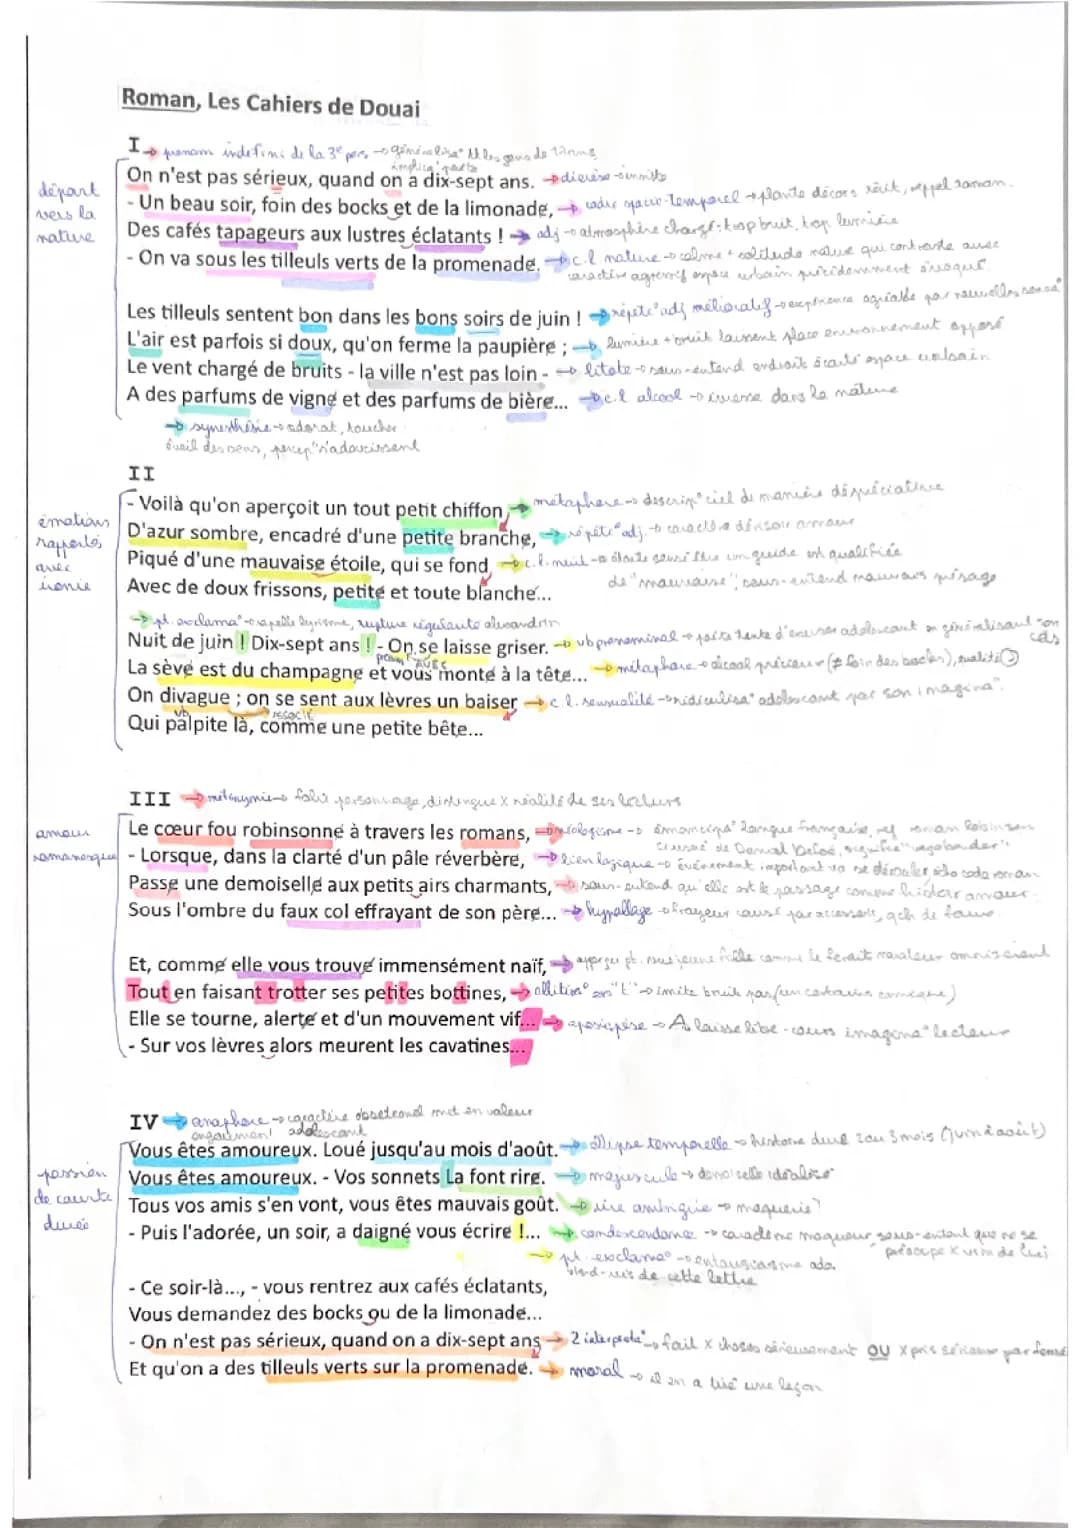 Roman, Les Cahiers de Douai
I → pronom indéfini de la 3e pers → généralisa° ts les gens de 17 ans
départ vers la nature
On n'est pas sérieux, quand on a dix-sept ans. → diérèse → insiste
- Un beau soir, foin des bocks et de la limonade, → cadre spacio-temporel → plante décors, récit, rappel roman.
Des cafés tapageurs aux lustres éclatants ! → adj → atmosphère chargé: trop bruit, trop lumière
- On va sous les tilleuls verts de la promenade. → c.l nature → calme + solitude nature qui contraste avec
caractère agressif espace urbain précédemment évoqué.
Les tilleuls sentent bon dans les bons soirs de juin ! → répéte° adj mélioratif → expérience agréable par nouvelles sensa°
L'air est parfois si doux, qu'on ferme la paupière ; → lumière + bruit laissent place environnement opposé
Le vent chargé de bruits - la ville n'est pas loin - → litote → sous-entend endroit écarté espace urbain
A des parfums de vigne et des parfums de bière... → c.l alcool → ivresse dans la nature
→ synesthésie → odorat, toucher
éveil des sens, percep° s'adoucissent
II
émotions rapportés avec ironie
- Voilà qu'on aperçoit un tout petit chiffon, → métaphore → descrip° ciel de manière dépréciative
D'azur sombre, encadré d'une petite branche, → répéte° adj. → caractère dérisoire amour
Piqué d'une mauvaise étoile, qui se fond → c.l. nuit → étoile sensé être un guide est qualifiée
Avec de doux frissons, petite et toute blanche... de "mauvaise", sous-entend mauvais présage
→ pt. exclama° → rapelle lyrisme, rupture régularité alexandrin
Nuit de juin ! Dix-sept ans ! - On se laisse griser. → vb pronominal → poète tente d'excuser adolescent en généralisant son cas
La sève est du champagne et vous monte à la tête... → métaphore → alcool précieux (≠ foin des bocks),
On divague ; on se sent aux lèvres un baiser → c.l. sensualité → ridiculisa° adolescent par son imagina°.
Qui palpite là, comme une petite bête...
III → métonymie → folie personnage, distingue x réalité de ses lectures
amour romanesque
Le cœur fou robinsonne à travers les romans, → néologisme → émancipa° langue française, ref roman Robinson
Crusoé de Daniel Defoe, signifie "vagabonder"
- Lorsque, dans la clarté d'un pâle réverbère, → lien logique → événement important va se dérouler
Passe une demoiselle aux petits airs charmants, → sous-entend qu'elle est de passage comme histoire amour.
Sous l'ombre du faux col effrayant de son père... → hypallage → frayeur causé par accessoire, qch de faux.
Et, comme elle vous trouve immensément naïf, → jeune fille comme le ferait narrateur omniscient
Tout en faisant trotter ses petites bottines, → allitéra° en "t" → imite bruit pas (un certains comique)
Elle se tourne, alerte et d'un mouvement vif... → aposiopèse → A laisse libe-cours imagina° lecteur
- Sur vos lèvres alors meurent les cavatines...
IV → anaphore → caractère obsetionel met en valeur
adolescent
passion de courte durée
Vous êtes amoureux. Loué jusqu'au mois d'août. → ellipse temporelle → histoire dure 2 ou 3 mois (juin à août)
Vous êtes amoureux. - Vos sonnets La font rire. → majuscule → demoiselle idéalisé
Tous vos amis s'en vont, vous êtes mauvais goût. → rire ambigüe → moquerie?
- Puis l'adorée, un soir, a daigné vous écrire !... → condescendance → caractère moqueur, sous-entend que ne se
préocupe x vrm de lui
→ pt exclama° → entousiasme ado.
vis-à-vis de cette lettre
- Ce soir-là..., - vous rentrez aux cafés éclatants,
Vous demandez des bocks ou de la limonade...
- On n'est pas sérieux, quand on a dix-sept ans → 2 interpréta° → fait x choses sérieusement OU x pris sérieux par
Et qu'on a des tilleuls verts sur la promenade. → moral → il en a tiré une leçon